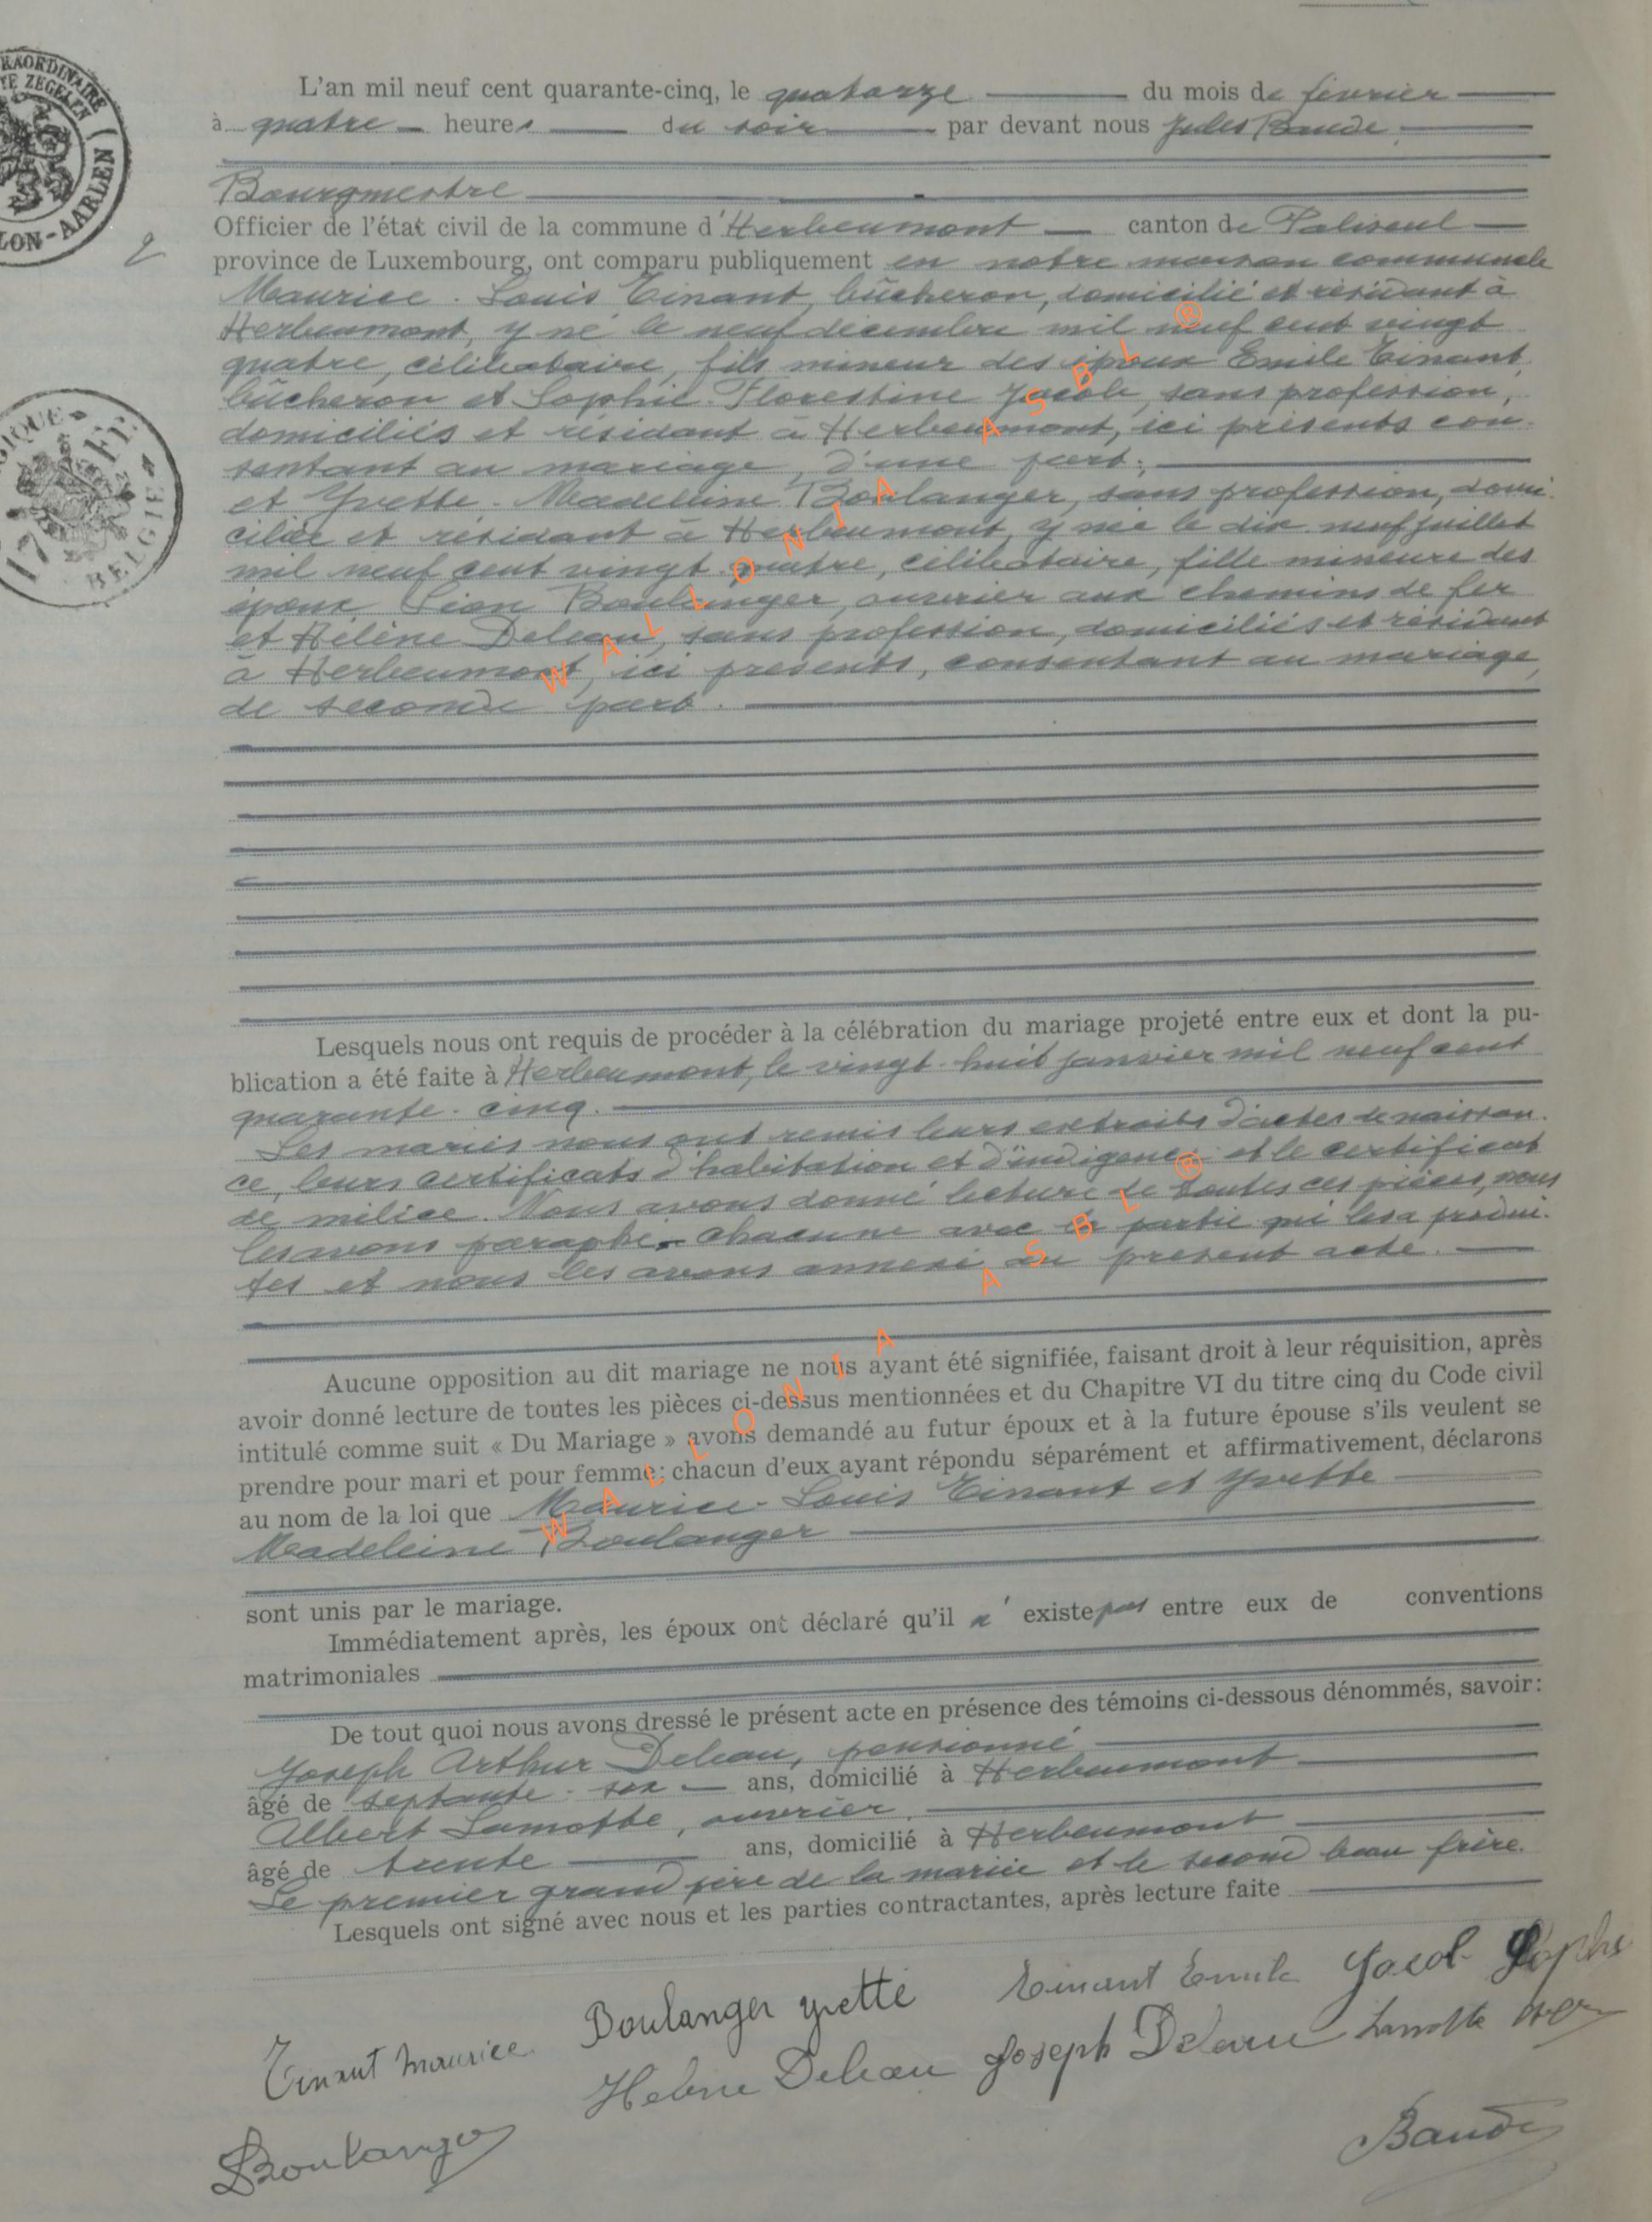 L'an mil neuf cent quarante-cinq, le quatorze du mois de février
à quatre heures du soir par devant nous Jules Baude
Bourgmestre
Officier de l'état civil de la commune d'Herbeumont canton de Paliseul
province de Luxembourg, ont comparu publiquement en notre maison communale
Maurice-Louis Tinant, bûcheron, domicilié et résidant à
Herbeumont, y né le neuf décembre mil neuf cent vingt
quatre, célibataire, fils mineur des époux Emile Tinant,
bûcheron et Sophie-Florestine Jacob, sans profession,
domiciliés et résidant à Herbeumont, ici présents con-
sentant au mariage, d'une part;
et Yvette-Madeleine Boulanger, sans profession, domi-
ciliée et résidant à Herbeumont, y née le dix neuf juillet
mil neuf cent vingt quatre, célibataire, fille mineure des
époux Léon Boulanger, ouvrier aux chemins de fer
et Hélène Deleau, sans profession, domiciliés et résidant
à Herbeumont, ici présents, consentant au mariage,
de seconde part.
Lesquels nous ont requis de procéder à la célébration du mariage projeté entre eux et dont la pu-
blication a été faite à Herbeumont, le vingt-huit janvier mil neuf cent
quarante-cinq.
Les mariés nous ont remis leurs extraits d'actes de naissan-
ce, leurs certificats d'habitation et d'indigence et le certificat
de milice. Nous avons donné lecture de toutes ces pièces, nous
les avons paraphé chacune avec la partie qui les a produi-
tes et nous les avons annexé au présent acte.
Aucune opposition au dit mariage ne nous ayant été signifiée, faisant droit à leur réquisition, après
avoir donné lecture de toutes les pièces ci-dessus mentionnées et du Chapitre VI du titre cinq du Code civil
intitulé comme suit « Du Mariage » avons demandé au futur époux et à la future épouse s'ils veulent se
prendre pour mari et pour femme; chacun d'eux ayant répondu séparément et affirmativement, déclarons
au nom de la loi que Maurice-Louis Tinant et Yvette
Madeleine Boulanger
sont unis par le mariage.
Immédiatement après, les époux ont déclaré qu'il n'existe pas entre eux de conventions
matrimoniales
De tout quoi nous avons dressé le présent acte en présence des témoins ci-dessous dénommés, savoir:
Joseph Arthur Deleau, pensionné
âgé de septante-six ans, domicilié à Herbeumont
Albert Lamotte, ouvrier,
âgé de trente ans, domicilié à Herbeumont
Le premier grand père de la mariée et le second beau frère.
Lesquels ont signé avec nous et les parties contractantes, après lecture faite
Tinant Maurice Boulanger yvette Tinant Emile Jacob Sophie
Boulanger Helène Deleau Joseph Deleau Lamotte
Baude
WALLONIA ASBL ®
WALLONIA ASBL ®
17 Fr
BELGIE
LON-AARLEN
2